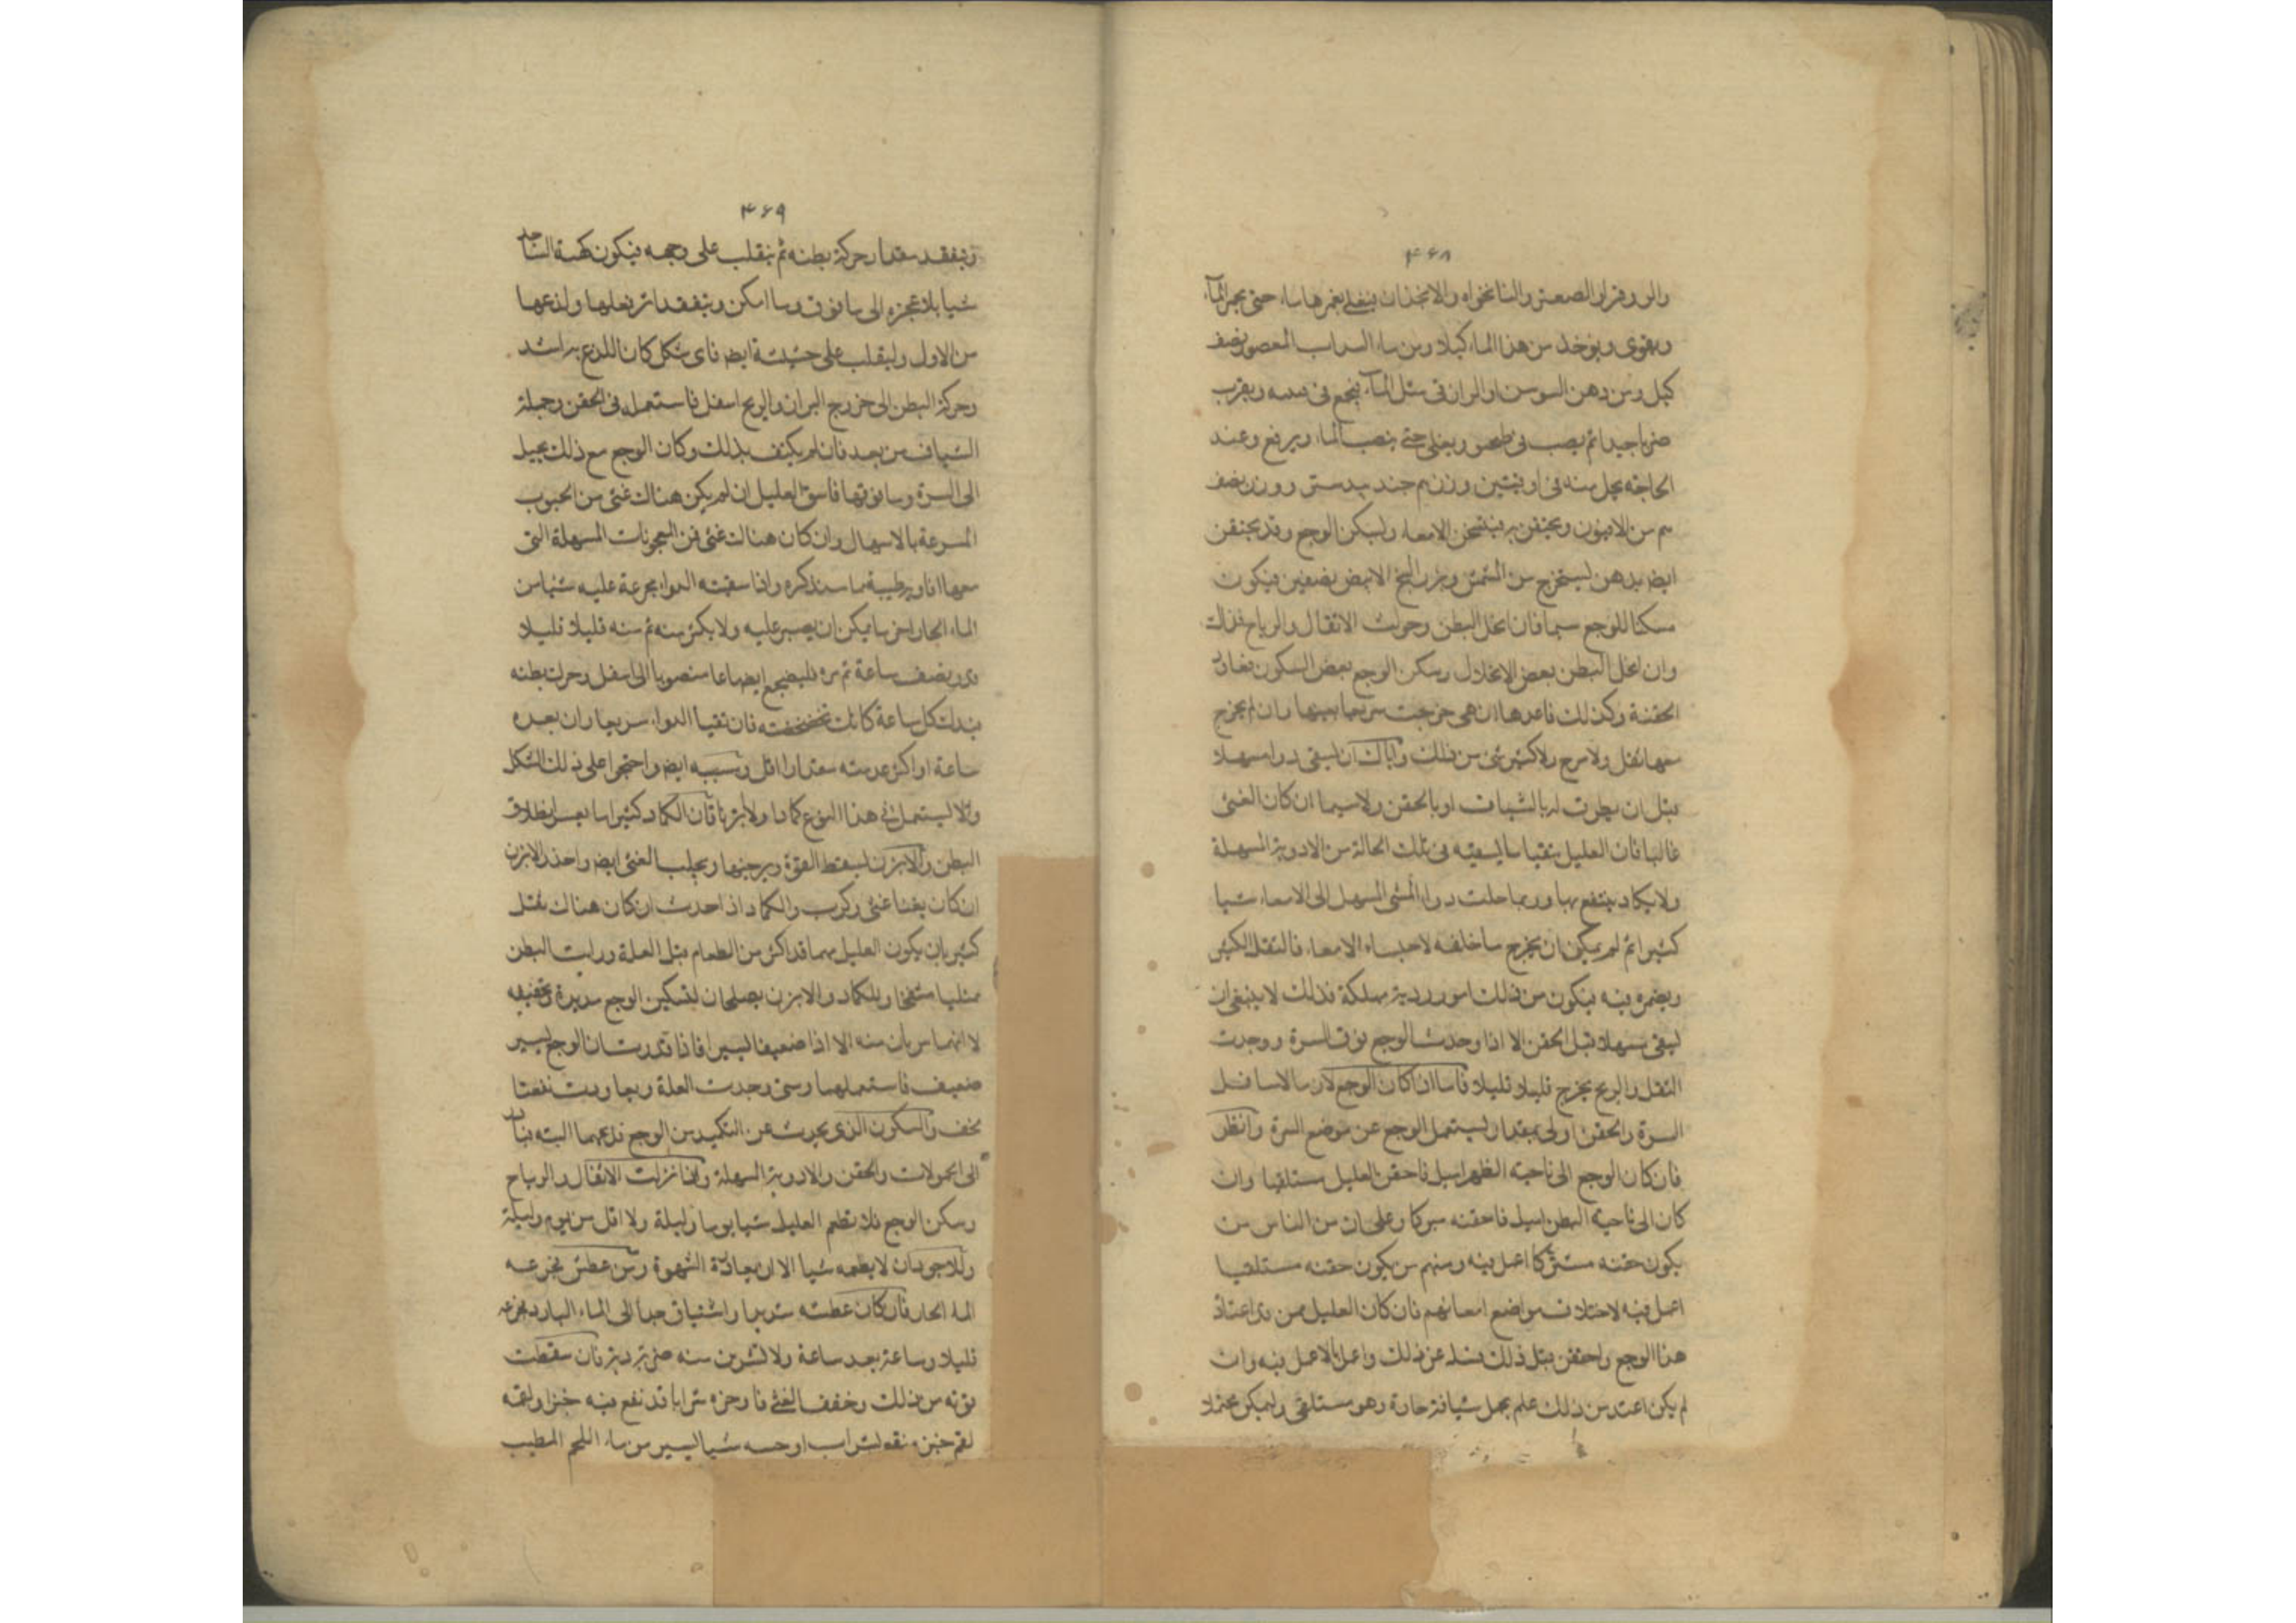 ۴۶۸
والصعتر والنانخواه والانجذان يغلى بغمرها ماء حتى يحمر الماء
ويقوى ويؤخذ من هذا الماء كيلا ومن ماء السداب المعصور نصف
كيل ومن دهن السوسن او الرازقى مثل الماء يجمع فى
ضربا جيدا ثم يصب فى ويغلى حتى ينصب الماء ويرفع وعند
الحاجة يحل منه فى اوقيتين وزن م جندبيدستر ووزن نصف
م من الافيون ويحتقن به فيسخن الامعاء وليسكن الوجع وقد يحتقن
ايضا بدهن ليستخرج من المشمش وبزر البنج الابيض نصفين فيكون
مسكنا للوجع سيما فان انحل البطن وحركت الاثقال والرياح فذاك
وان انحل البطن بعض الانحلال وسكن الوجع بعض السكون فعاود
الحقنة وكذلك فاعدها ان هى خرجت سريعا وان لم يخرج
معها ثفل ولا ريح ولا كثير شئ من ذلك واياك ان ليسقى دوا مسهلا
قبل ان يطرق له بالشياف او بالحقن ولا سيما ان كان الغثى
غالبا فان العليل يتقيا ما ليسقيه فى تلك الحالة من الادوية المسهلة
ولا يكاد ينتفع بها وربما حملت دواء المشى المسهل الى الامعاء شيا
كثيرا ثم لم يمكن ان يخرج ما خلفه لاحتباء الامعاء فالثقل الكثير
ويضمره فيه فيكون من ذلك امور ردية مهلكة فذلك لا ينبغى ان
ليسقى مسهلا قبل الحقن الا اذا وجدت الوجع فوق السرة ووجدت
الثقل والريح يخرج قليلا قليلا فاما ان كان الوجع لازما لاسافل
السرة والحقن اولى بمقدار ليستعمل الوجع عن موضع السرة وانظر
فان كان الوجع الى ناحية الظهر اميل فاحقن العليل مستلقيا وان
كان الى ناحية البطن اميل فاحقنه مبركا وعلى ان من الناس من
يكون حقنه مستبركا اعمل فيه ومنهم من يكون حقنه مستلقيا
اعمل فيه لاختلاف مواضع امعائهم فان كان العليل ممن قد اعتاد
هذا الوجع واحتقن قبل ذلك فسله عن ذلك واعمل بالاعمل فيه وان
لم يكن اعتد من ذلك علم بحمل شيافة حادة وهو مستلقى وليمكن
۴۶۹
وتفقد مقدار حركة بطنه ثم ينقلب على وجهه فيكون كهيئة الساجد
شيا بلا عجزه الى ما فوق وما امكن ويتفقد اثر فعلها ولذعها
من الاول ولينقلب على جنبيه ايضا فاى شكل كان اللذع به اشد
وحركة البطن الى خروج البراز والريح اسفل فاستعمله فى الحقن وحيلة
الشياف من بعد فان لم يكتف بذلك وكان الوجع مع ذلك يميل
الى السرة وما فوقها فاسق العليل ان لم يكن هناك غثى من الحبوب
المسرعة بالاسهال وان كان هناك غثى فمن المعجونات المسهلة التى
معها افاويه طيبة مما سنذكره واذا سقيته الدواء بجرعة عليه شيا من
الماء الحار اسخن ما يمكن ان يصبر عليه ولا يكثر منه ثم منه قليلا قليلا
قدر نصف ساعة ثم مره فليضجع منصوبا الى اسفل وحرك بطنه
بيدك كل ساعة كانك تخضخضه فان تقيأ الدواء سريعا وان بعده
ساعة او اكثر عدت مقدارا اقل وسببه ايضا واحتجم على ذلك الشكل
ولا ليستعمل فى هذا النوع كمادا ولا ابزنا فان الكماد كثيرا ما يعسر انطلاق
البطن والابزن ليسقط القوة ويرخيها ويجلب الغثى ايضا واحذر الابزن
ان كان غثى وكرب والكماد اذا احدث ان كان هناك ثفل
كثير بان يكون العليل نهما قد اكثر من الطعام قبل العلة ورايت البطن
ممتليا منتفخا والكماد والابزن يصلحان لتسكين الوجع
لا انهما يبرآن منه الا اذا ضعيفا ليسيرا فاذا قدرت ان الوجع ليسير
ضعيف فاستعملهما ومتى وجدت العلة
تخف والسكون الذى يحدث عن التكميد من الوجع فدعهما البتة
الى الحمولات والحقن والادوية المسهلة واذا نزلت الاثقال والرياح
وسكن الوجع فلا تطعم العليل شيا يوما وليلة ولا اقل من يوم وليلة
والاجود ان لا يطعمه شيا الا ان بعاودة الشهوة ومن عطش تجرعه
الماء الحار فان كان عطشه شديدا واشتياق جدا الى الماء البارد
قليلا وساعة بعد ساعة ولا تشربن منه ضربة فان سقطت
قوته من ذلك وخفف الغثى شرابا قد نقع فيه خبزا
لقم خبز منقعة لشراب او حسه شيا ليسير من ماء اللحم المطيب